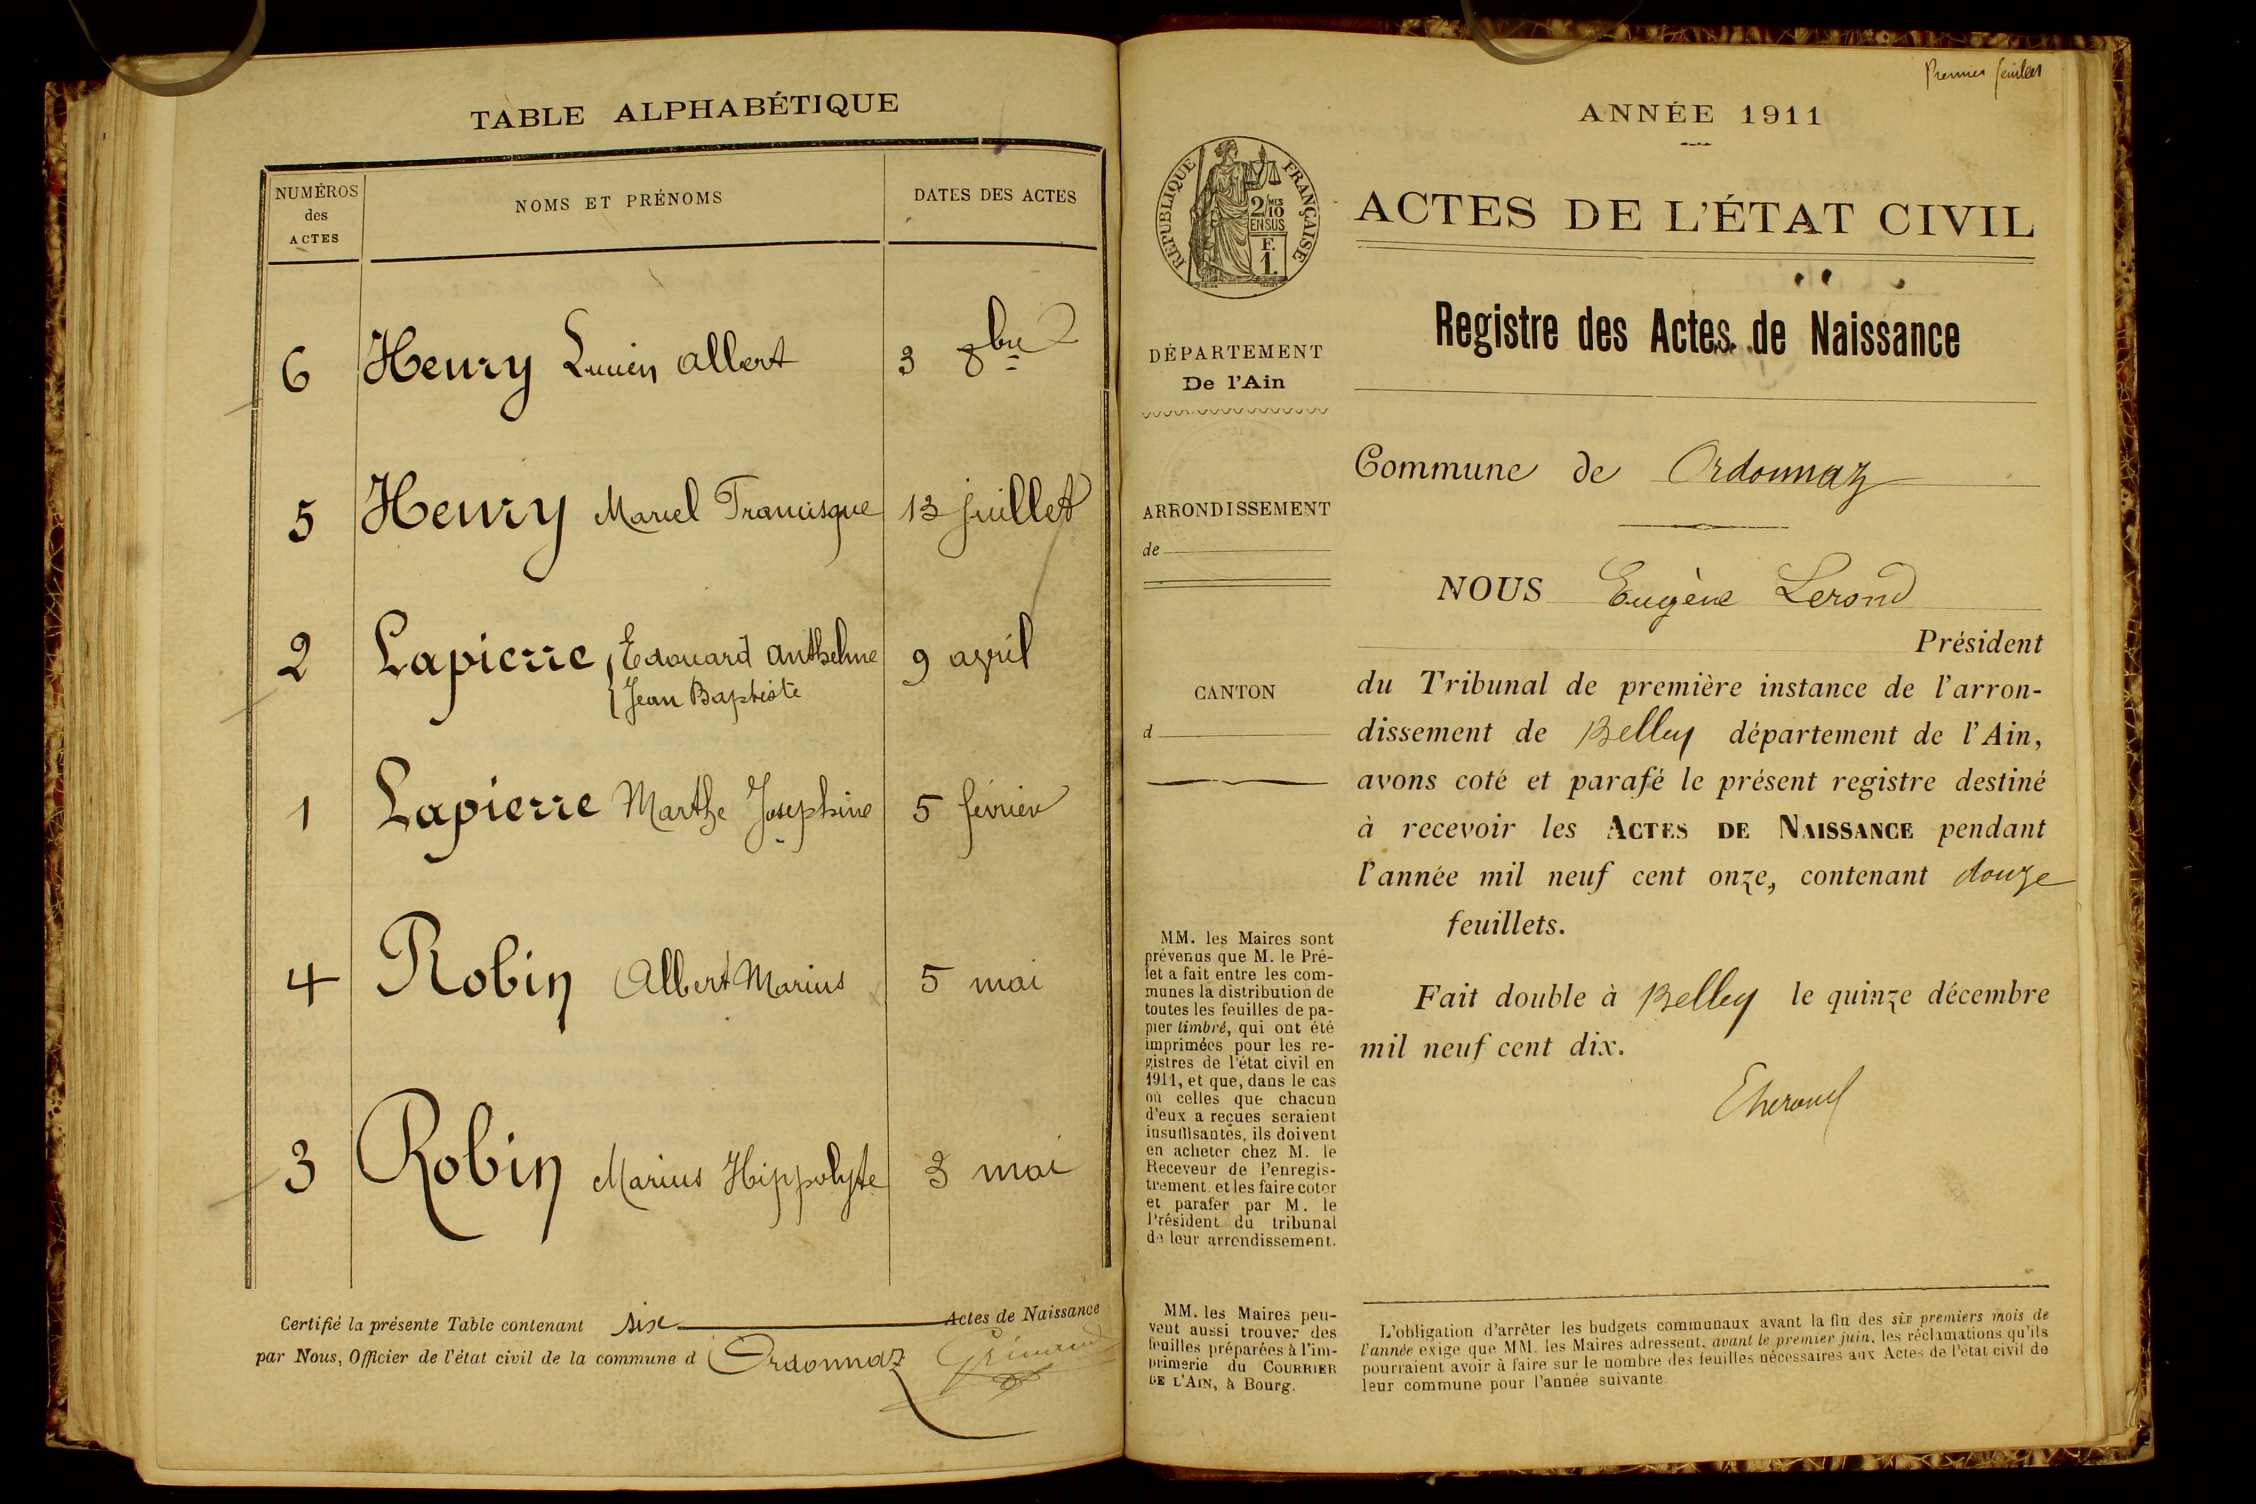 TABLE ALPHABÉTIQUE
NUMÉROS des ACTES
NOMS ET PRÉNOMS
DATES DES ACTES
6 Henry Lucien Albert 3 8bre
5 Henry Marcel Francisque 13 juillet
2 Lapierre Edouard Anthelme 9 avril
Jean Baptiste
1 Lapierre Marthe Josephine 5 février
4 Robin Albert Marius 5 mai
3 Robin Marius Hippolyte 3 mai
Certifié la présente Table contenant six Actes de Naissance
par Nous, Officier de l'état civil de la commune d Ordonnaz
Premier feuillet
ANNÉE 1911
RÉPUBLIQUE FRANÇAISE
2/10 MES
EN SUS
F.
1.
ACTES DE L'ÉTAT CIVIL
Registre des Actes de Naissance
DÉPARTEMENT
De l'Ain
ARRONDISSEMENT
de
CANTON
d
Commune de Ordonnaz
NOUS Eugène Lerond
Président
du Tribunal de première instance de l'arron-
dissement de Belley département de l'Ain,
avons coté et parafé le présent registre destiné
à recevoir les ACTES DE NAISSANCE pendant
l'année mil neuf cent onze, contenant douze
feuillets.
Fait double à Belley le quinze décembre
mil neuf cent dix.
MM. les Maires sont
prévenus que M. le Pré-
fet a fait entre les com-
munes la distribution de
toutes les feuilles de pa-
pier timbré, qui ont été
imprimées pour les re-
gistres de l'état civil en
1911, et que, dans le cas
où celles que chacun
d'eux a reçues seraient
insuffisantes, ils doivent
en acheter chez M. le
Receveur de l'enregis-
trement et les faire coter
et parafer par M. le
Président du tribunal
de leur arrondissement.
MM. les Maires peu-
vent aussi trouver des
feuilles préparées à l'im-
primerie du COURRIER
DE L'AIN, à Bourg.
L'obligation d'arrêter les budgets communaux avant la fin des six premiers mois de
l'année exige que MM. les Maires adressent, avant le premier juin, les réclamations qu'ils
pourraient avoir à faire sur le nombre des feuilles nécessaires aux Actes de l'état civil de
leur commune pour l'année suivante.